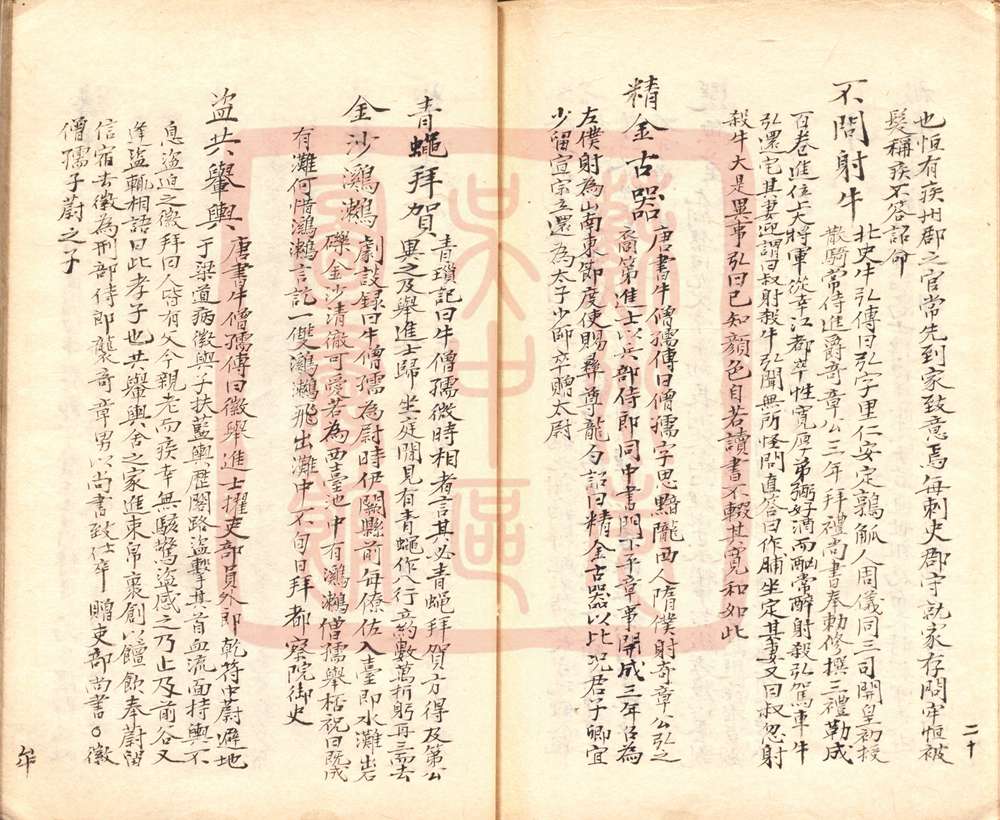 也恒有疾州郡之官常先到家致意焉每刺史郡守就家存問牢恒被
髮稱疾不答詔命
不問射牛
北史牛弘傳曰弘字里仁安定鶉觚人周儀同三司開皇初授
散騎常侍進爵奇章公三年拜禮尚書奉勅修撰三禮勒成
百卷進位上大將軍從幸江都卒性寬厚弟弼好酒而酗常醉射殺弘駕車牛
弘還宅其妻迎謂曰叔射殺牛弘聞無所怪問直答曰作脯坐定其妻又曰叔忽射
殺牛大是異事弘曰已知顏色自若讀書不輟其寬和如此
精金古器
唐書牛僧孺傳曰僧孺字思黯隴西人隋僕射奇章公弘之
裔第進士以兵部侍郎同中書門下平章事開成三年召為
左僕射為山南東節度使賜彝尊龍勺詔曰精金古器以比况君子卿宜
少留宣宗立還為太子少師卒贈太尉
青蠅拜賀
青瑣記曰牛僧孺微時相者言其必青蠅拜賀方得及第公
異之及舉進士歸坐庭閒見有青蠅作八行約數萬折躬再三而去
金沙鸂鶒
劇談錄曰牛僧孺為尉時伊闕縣前每僚佐入臺即水灘出石
礫金沙清徹可愛若為西臺池中有鸂鶒僧孺舉栝祝曰既
有灘何惜鸂鶒言訖一雙鸂鶒飛出灘中不旬日拜都察院御史
盜共轝輿
唐書牛僧孺傳曰徽舉進士擢吏部員外郎乾符中蔚避地
于梁道病徽與子扶藍輿歷閣路盜擊其首血流面持輿不
息盜迫之徽拜曰人皆有父今親老而疾幸無駭驚盜感之乃止及前谷又
逢盜輒相語曰此孝子也共舉輿舍之家進束帛裹創以饘飲奉蔚留
信宿去徽為刑部侍郎襲奇章男以尚書致仕卒贈吏部尚書○徽
僧孺子蔚之子
二十